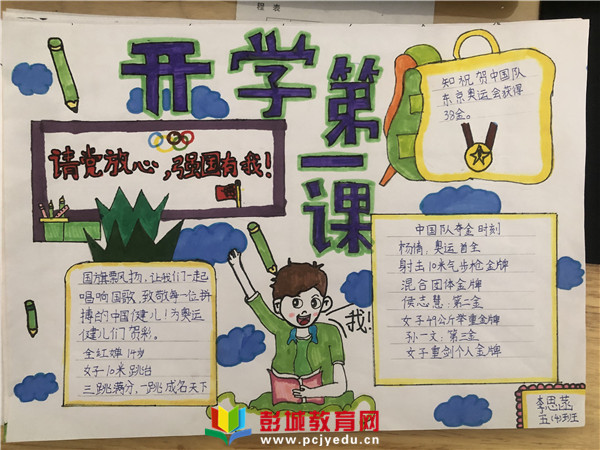 程 表
开学
第一课
请党放心,强国有我!
知祝贺中国队
东京奥运会获课
38金。
国旗飘扬,让我们一起
唱响国歌,致敬每一位拼
搏的中国健儿!为奥运
健儿们贺彩。
全红婵 14岁
女子10米跳台
三跳满分,一跳成名天下
我!
中国队夺金时刻
杨倩,奥运首金
射击10米气步枪金牌
混合团体金牌
侯志慧:第二金
女子49公斤举重金牌
孙一文:第三金
女子重剑个人金牌
李思菡
五(4)班
彭城教育网
www.pcjyedu.cn